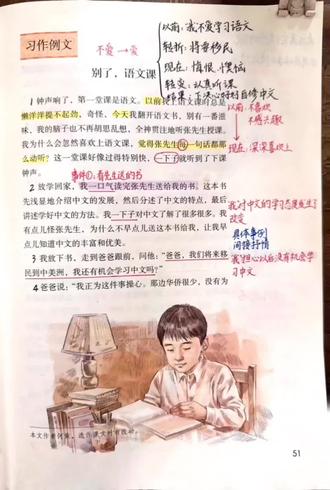 习作例文
不爱→爱
以前:我不爱学习语文
转折:将要移民
现在:悔恨、懊恼
转变:认真听课
结果:下决心好好自修中文
别了,语文课
1 钟声响了,第一堂课是语文。以前我上语文课时总是
懒洋洋提不起劲,奇怪,今天我翻开语文书,别有一番滋
味,我的脑子也不再胡思乱想,全神贯注地听张先生授课。
我为什么会忽然喜欢上语文课,觉得张先生每一句话都那
么动听?这一堂课好像过得特别快,一下子就听到了下课
钟声。
以前:不喜欢
不感兴趣
现在:深深喜欢上
事件①:看先生送的书
2 放学回家,我一口气读完张先生送给我的书。这本书
先浅显地介绍中文的发展,然后分述了中文的特点,最后
讲述学好中文的方法。我一下子对中文了解了很多很多。我
有点儿怪张先生,为什么不早点儿送这本书给我,让我早
点儿知道中文的丰富和优美。
我对中文的学习态度发生了
改变
具体事例
间接抒情
3 我放下书,走到爸爸跟前,问他:“爸爸,我们将来移
民到中美洲,我还有机会学习中文吗?”
我担心以后没有机会学
习中文
4 爸爸说:“我正为这件事操心。那边华侨很少,没有为
51